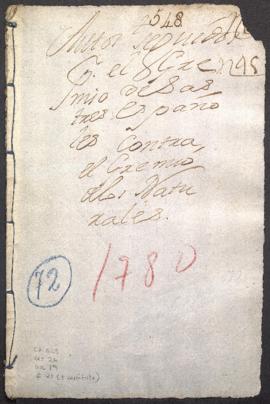 548
Autos seguidos
Pr. el Gre
mio de Sas
tres Españo
les contra
el Gremio
de los Natu
rales.
1780
72